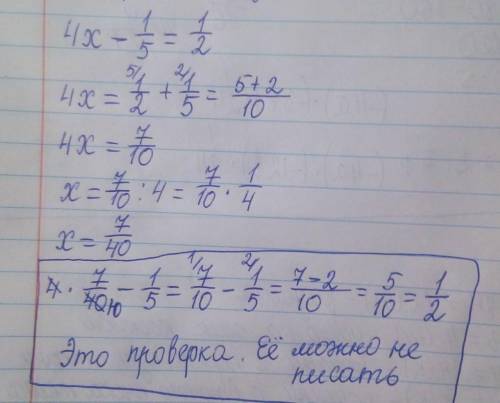 4x - 1/5 = 1/2
4x = ⁵⁄1/2 + ²⁄1/5 = 5+2/10
4x = 7/10
x = 7/10 : 4 = 7/10 · 1/4
x = 7/40
4 · 7/40 10 - 1/5 = ¹⁄7/10 - ²⁄1/5 = 7-2/10 = 5/10 = 1/2
Это проверка. Её можно не
писать